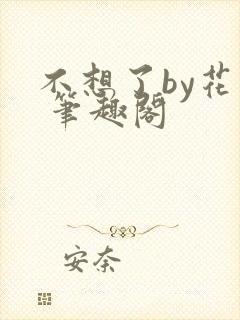 不想了by花
笔趣阁
安奈